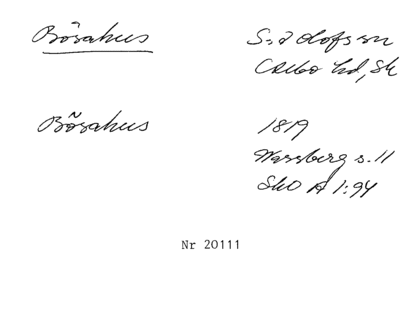 Bösahus
S:a Olofs sn
Albo hd, Sk
Bõsahus
1819
Wessberg s. 11
SkO A 1:94
Nr 20111